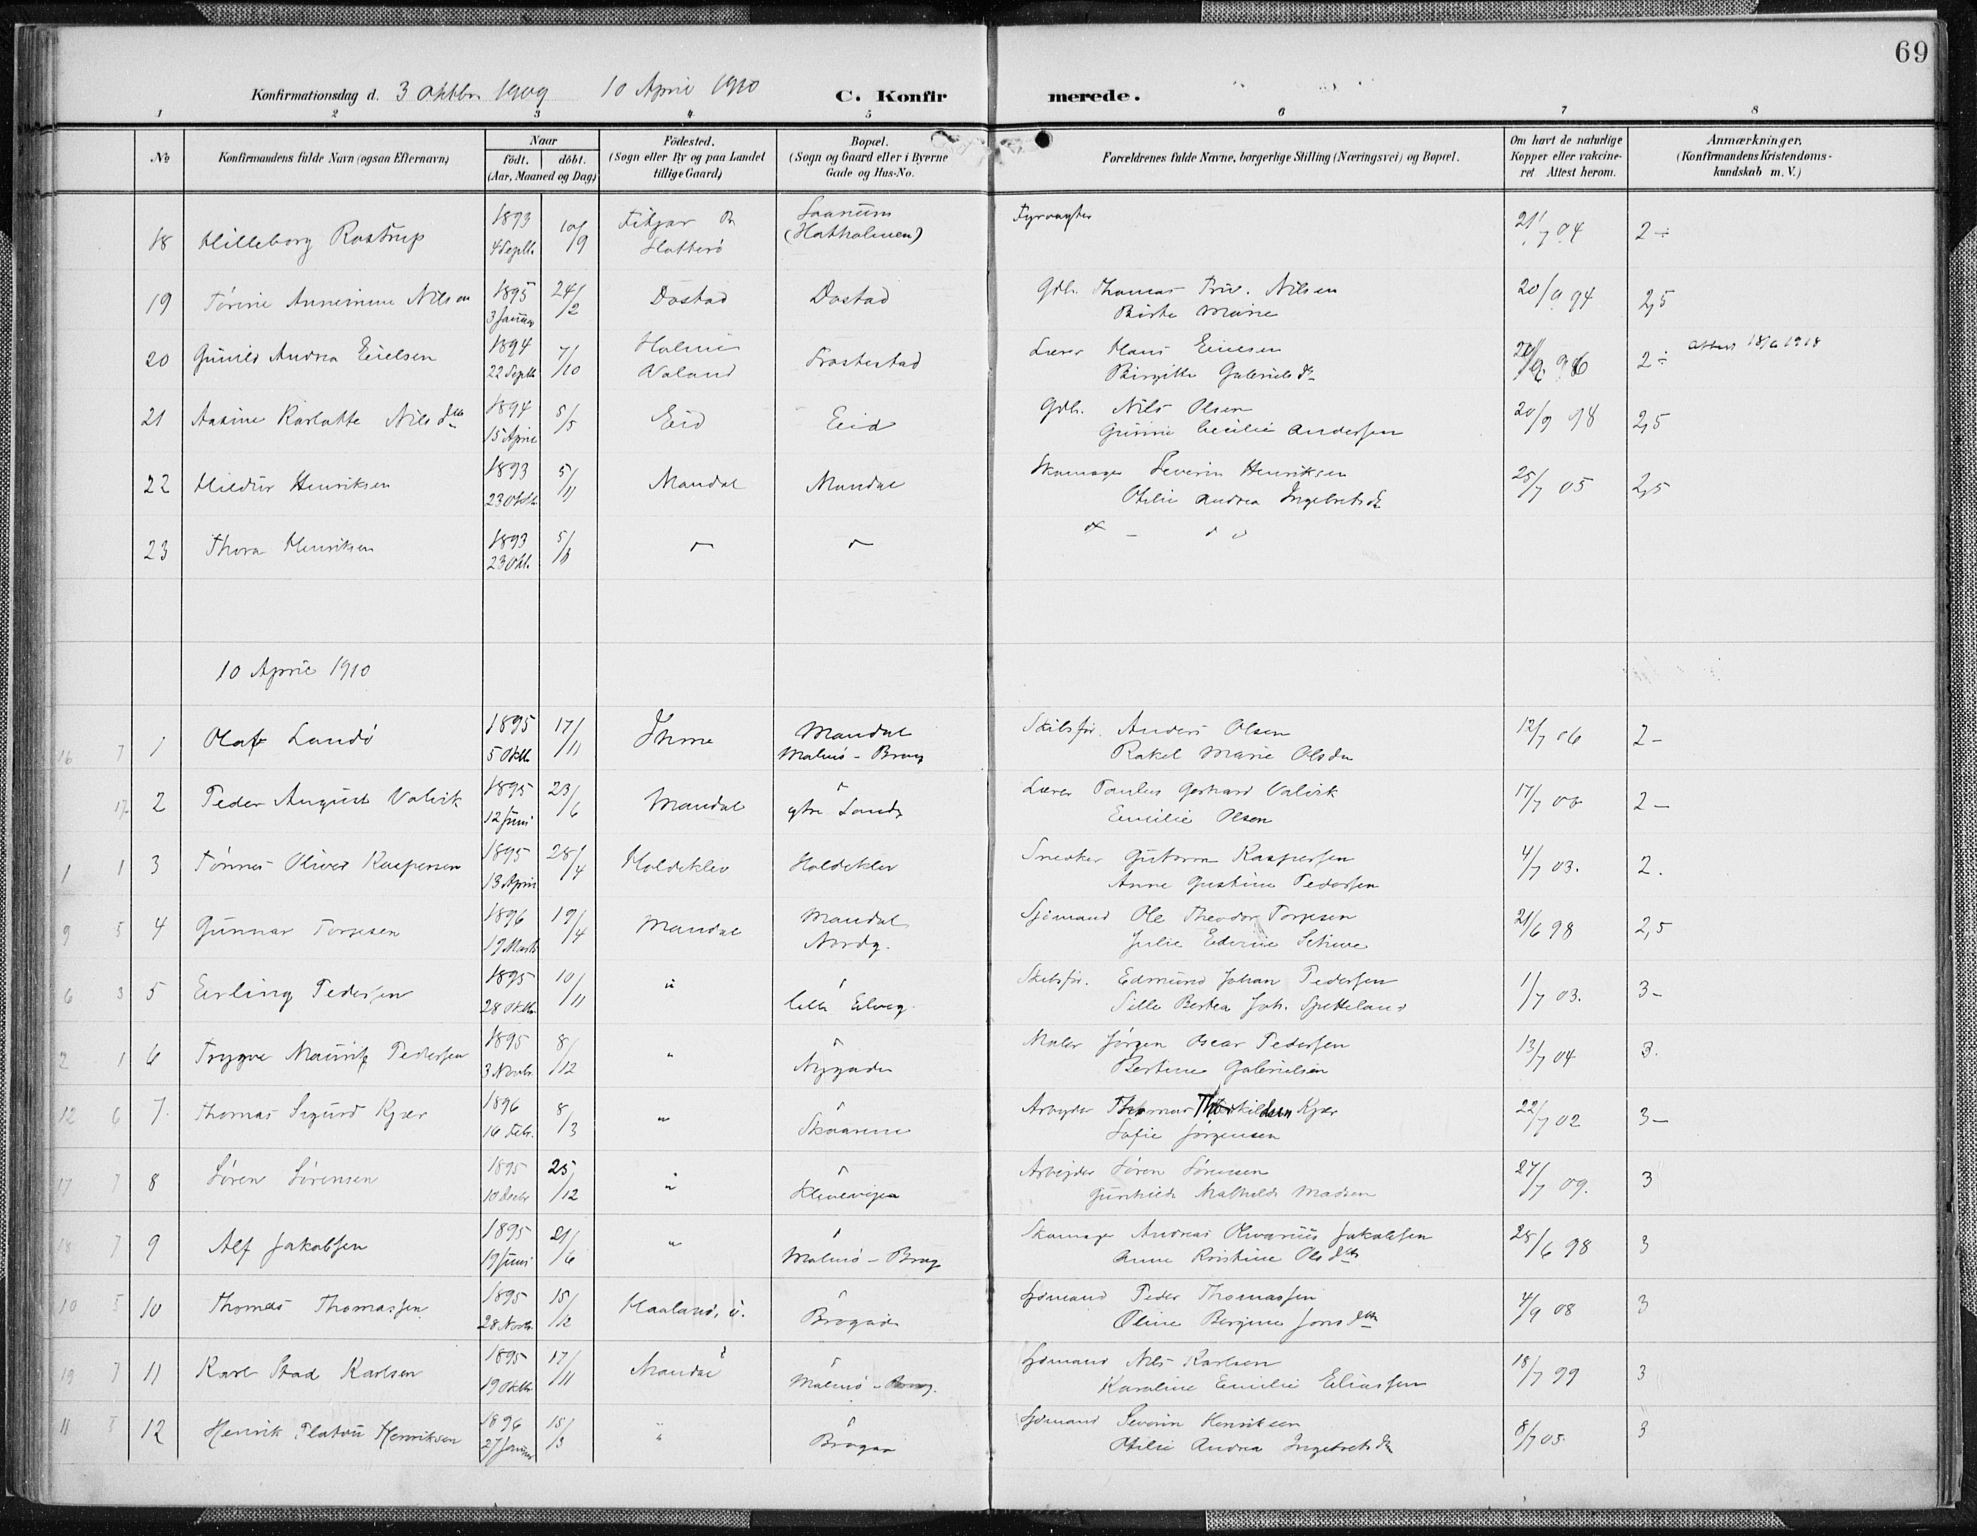 69
Konfirmationsdag d. 3 Oktbr 1909 10 April 1910 C. Konfirmerede.
1 2 3 4 5 6 7 8
No Konfirmandens fulde Navn (ogsaa Efternavn) Naar födt. döbt. (Aar, Maaned og Dag) Födested. (Sogn eller By og paa Landet tillige Gaard) Bopæl. (Sogn og Gaard eller i Byerne Gade og Hus-No. Forældrenes fulde Navne, borgerlige Stilling (Næringsvei) og Bopæl. Om havt de naturlige Kopper eller vakcineret Attest herom. Anmærkninger. (Konfirmandens Kristendomskundskab m. V.)
18 Hilleborg Rostrup 1893 4 Septb. 10/9 Fitjar Hatterø (Hatholmen) Fyrvogter 21/7 04 2 ÷
19 Nilsen 1895 3 Januar 24/2 Dostad Dostad Gdb. Thomas Nilsen 20/9 94 2,5
Birte Marie
20 Gunild Andrea Eielsen 1894 22 Septb 7/10 Holme Valand Frostestad Lærer Hans Eielsen 2 ÷ 18/6 1918
Birgitte Gabrielsdtr
21 Karlotte Nilsdtr 1894 15 April 5/5 Eid Eid Gdb. Nils Olsen 20/9 98 2,5
Cecilie Andersen
22 Hildur Henriksen 1893 23 Oktb. 5/11 Mandal Mandal Skomager Severin Henriksen 25/7 05 2,5
Otilie Andrea Ingebretsdtr
23 Thora Henriksen 1893 23 Okt. 5/11
10 April 1910
16 7 1 Olaf Landø 1895 5 Oktb 17/11 Ihme Mandal Malmø-Brog Skibsfør. Anders Olsen 12/7 06 2 -
Rakel Marie Olsdtr
17 2 Peder August Valvik 1895 12 Juni 23/6 Mandal Lærer Paulus Gerhard Valvik 17/7 2 -
Emilie Olsen
1 1 3 Tønnes Oliver Kaspersen 1895 13 April 28/4 Holdeklev Holdeklev Snedker Gutorm Kaspersen 4/7 03. 2.
Anne Gustine Pedersen
9 5 4 Gunnar Torjesen 1896 19 Marts 19/4 Mandal Mandal Nordg. Sjømand Ole Theodor Torjesen 21/6 98 2,5
Julie
6 3 5 Erling Pedersen 1895 28 Oktb 10/11 " " lille Elveg. Skibsfør. Edmund Johan Pedersen 1/7 03. 3 -
Sille Bertea Joh. Spetteland
2 1 6 Trygve Mauritz Pedersen 1895 3 Novb. 8/12 " " Nygade Maler Jørgen Oscar Pedersen 13/7 04 3.
Bertine Gabrielsen
12 6 7. Thomas Sigurd Kjær 1896 16 Feb. 8/3 " " Skaarene Arbejder Thomas Therkildsen Kjær 22/7 02 3 -
Sofie Jørgensen
17 7 8 Søren Sørensen 1895 10 Decbr 25/12 " " Kleivevejen Arbejder Søren Sørensen 27/7 09. 3
Gunhild Mathilde Madsen
18 7 9 Alf Jakobsen 1895 19 Juni 21/6 " " Malmø-Brog Skomager Andreas Olivarius Jakobsen 28/6 98 3
Anne Kristine Olsdtr
10 5 10 Thomas Thomassen 1895 28 Novb. 15/12 Haaland, " Brogade Sjømand Peder Thomassen 4/9 08 3
Oline Berjine Jonsdtr
19 7 11 Karl Stad Karlsen 1895 19 Oktb. 17/11 Mandal " Malmø-Brog. Sjømand Nils Karlsen 18/7 99 3
Karoline Emilie Eliassen
11 5 12 Henrik Platou Henriksen 1896 27 Januar 15/3 " " Brogade Sjømand Severin Henriksen 8/7 05 3
Otilie Andrea Ingebretsdtr